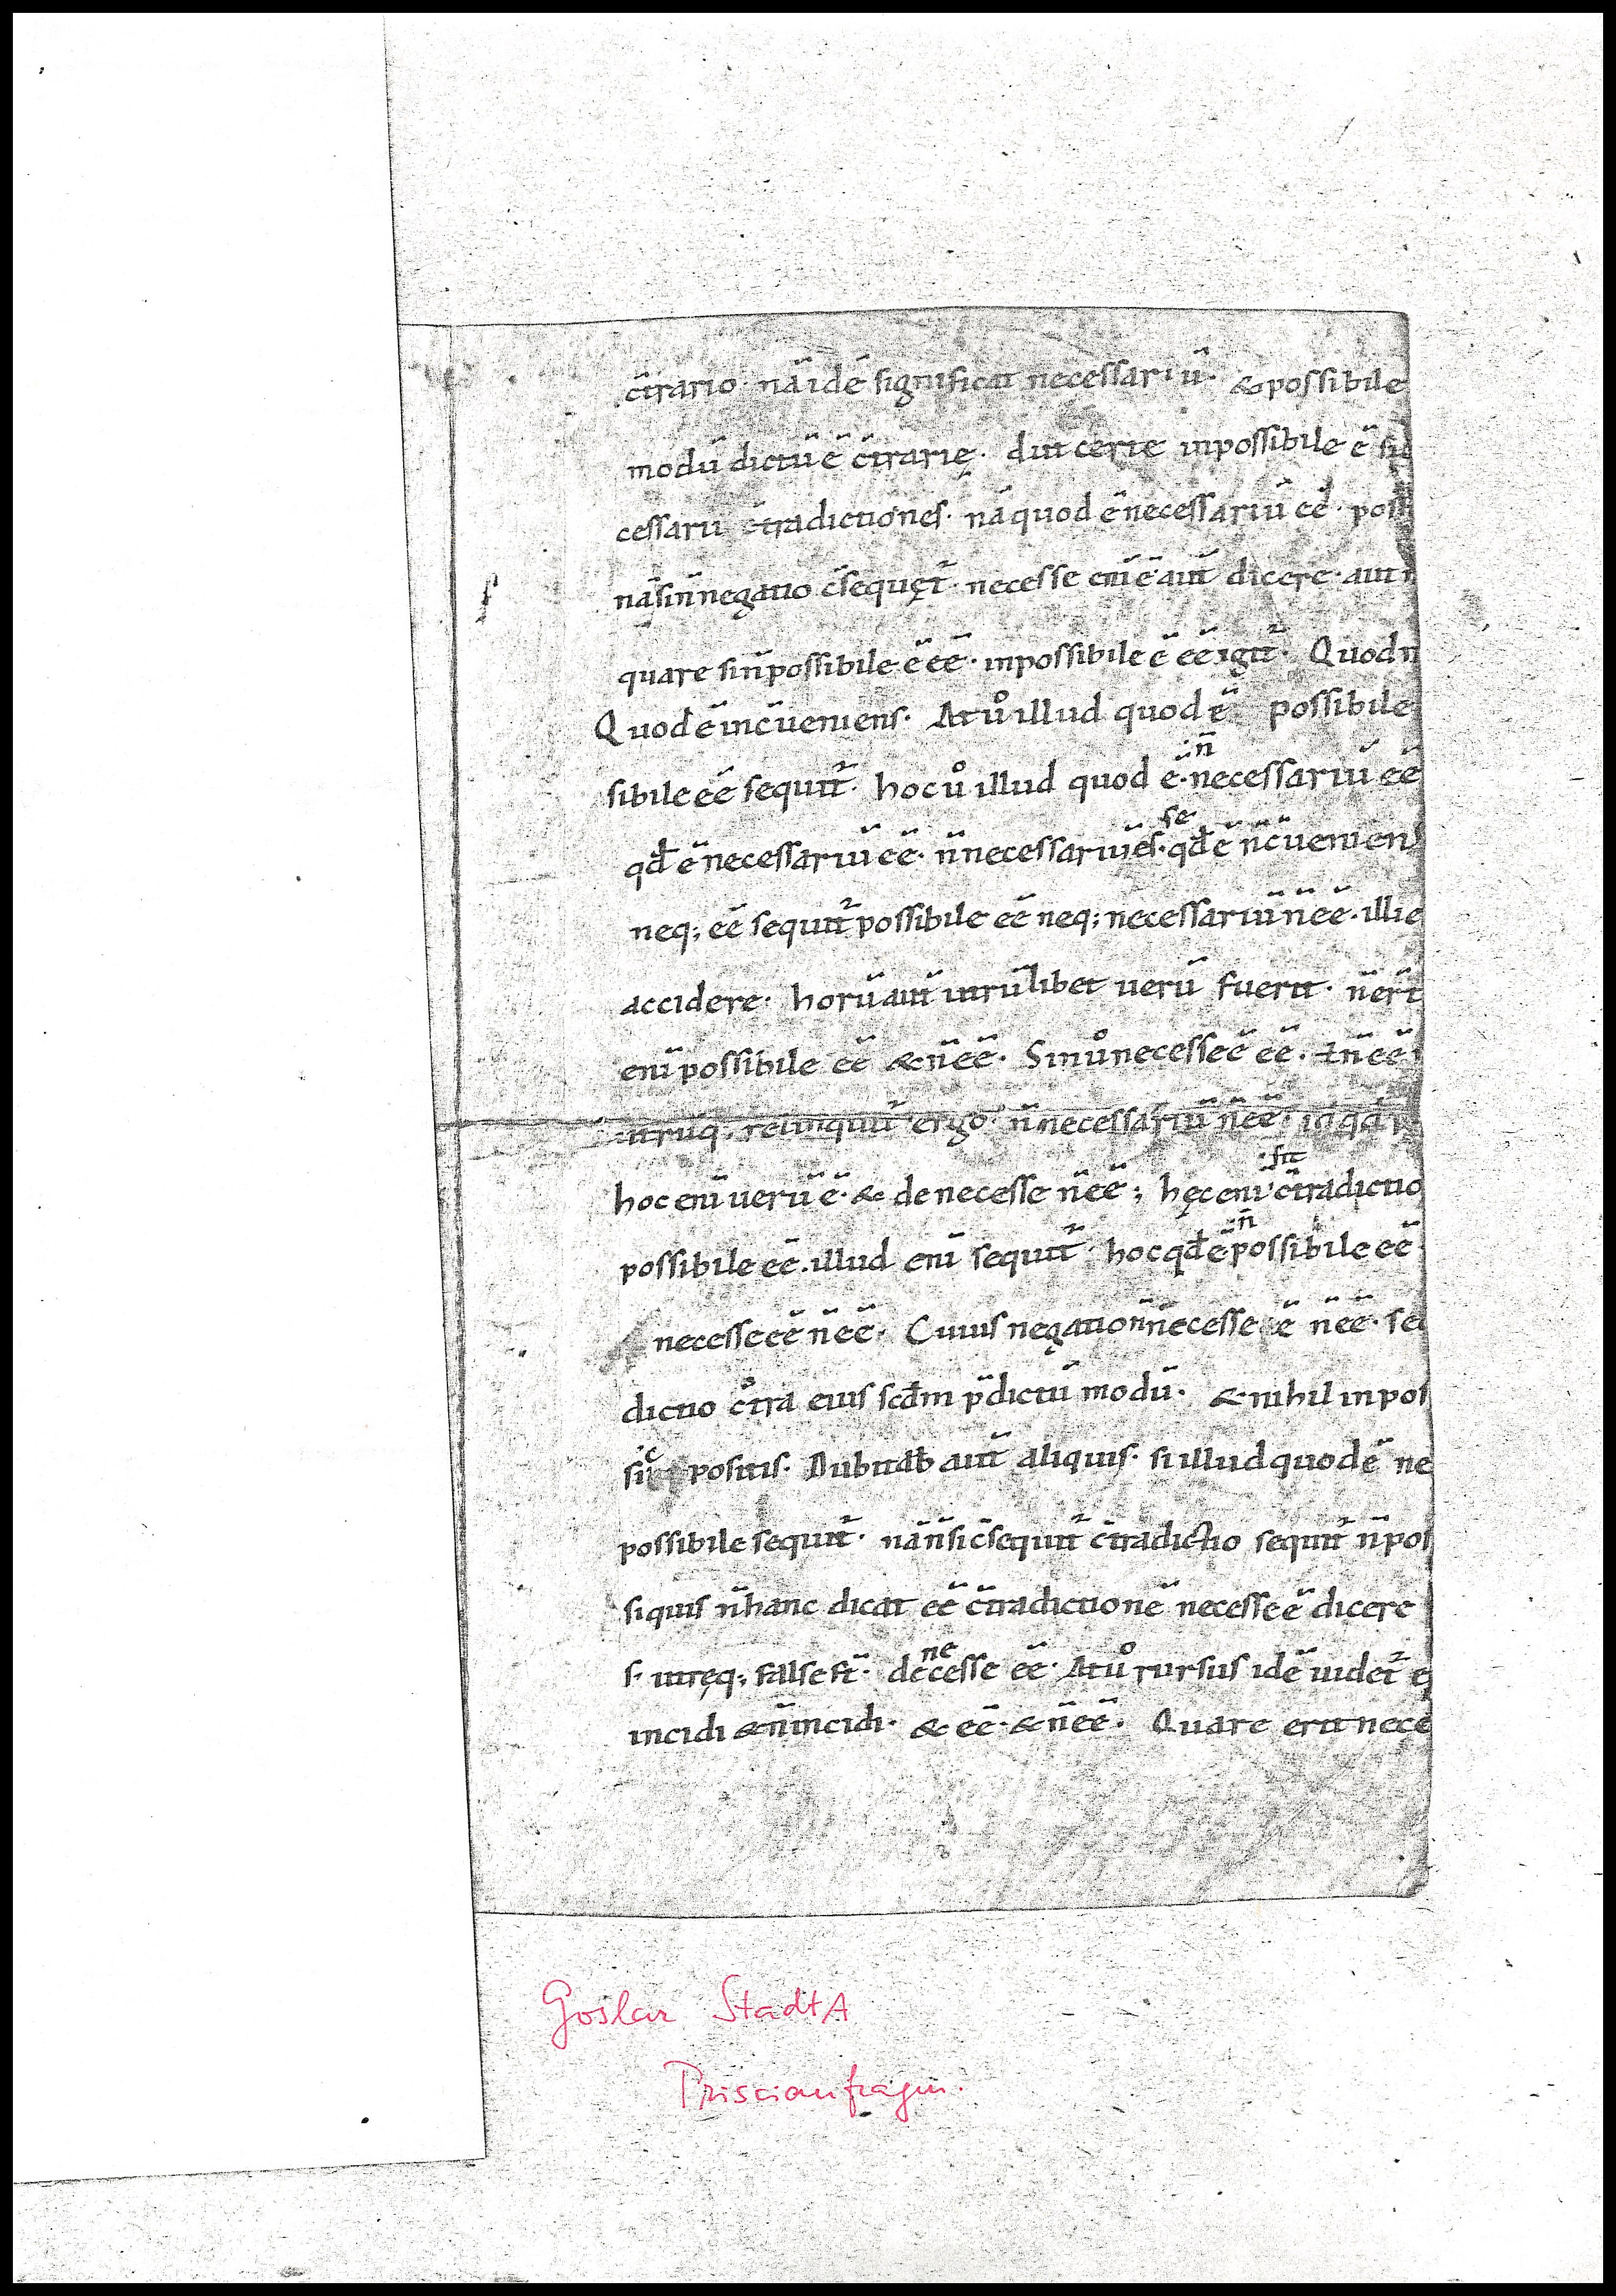 c̄trario· nā idē significat necessariū· & possibile
modū dictū ē c̄trarię· aut certe inpossibile ē sic
cessarii c̄tradictiones· nā quod ē necessariū eē· poss
nā sin̄ negatio c̄sequet̄· necesse eni ē aut̄ dicere· aut n
quare si n̄ possibile ē eē· inpossibile ē eē igit̄· Quod n
Quod ē inc̄ueniens· At uͦ illud quod ē possibile
sibile eē sequit̄· hoc uͦ illud quod ē· n̄ necessariū eē
qđ ē necessariū eē· n̄ necessariū es se· qđ ē inc̄ueniens
neq; eē sequit̄ possibile eē neq; necessariū n̄ eē· illi e
accidere· horū aut̄ utrūlibet uerū fuerit· n̄ erit
eni possibile eē & n̄ eē· Sin uͦ necesse ē eē· ł n̄ eē
utrūq; relinquit̄ ergo· n̄ necessariū n̄ eē·
hoc eni uerū ē· & de necesse n̄ eē; hęc eni fit c̄tradictio
possibile eē· illud eni sequit̄· hoc qđ ē n̄ possibile eē·
necesse eē n̄ eē· Cuius negatio n̄ necesse ē n̄ eē· se
dictio c̄tra eius scđm p̄dictū modū· & nihil inpos
sic positis· Dubitab̄ aut̄ aliquis· si illud quod ē ne
possibile sequit̄· nā n̄ si c̄sequit̄ c̄tradictio sequit̄ n̄ pos
si quis n̄ hanc dicat eē c̄tradictionē necesse ē dicere
s· utręq; false st̄· de necesse eē· At uͦ rursus idē uidet̄ e
incidi & n̄ incidi· & eē· & n̄ eē· Quare erit nece
Goslar StadtA
Priscianfragm.